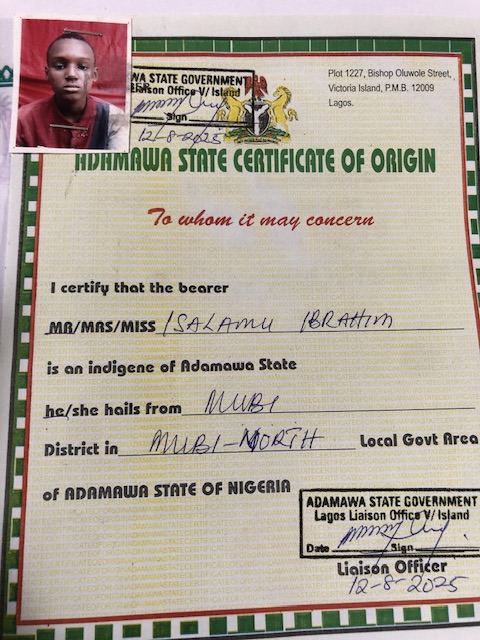 WA STATE GOVERNMENT
Liaison Office V/ Island
Sign
12-8-2025
Plot 1227, Bishop Oluwole Street,
Victoria Island, P.M.B. 12009
Lagos.
ADAMAWA STATE CERTIFICATE OF ORIGIN
To whom it may concern
I certify that the bearer
MR/MRS/MISS ISALAMU IBRAHIM
is an indigene of Adamawa State
he/she hails from MUBI
District in MUBI-NORTH Local Govt Area
of ADAMAWA STATE OF NIGERIA
ADAMAWA STATE GOVERNMENT
Lagos Liaison Office V/ Island
Date Sign
Liaison Officer
12-8-2025